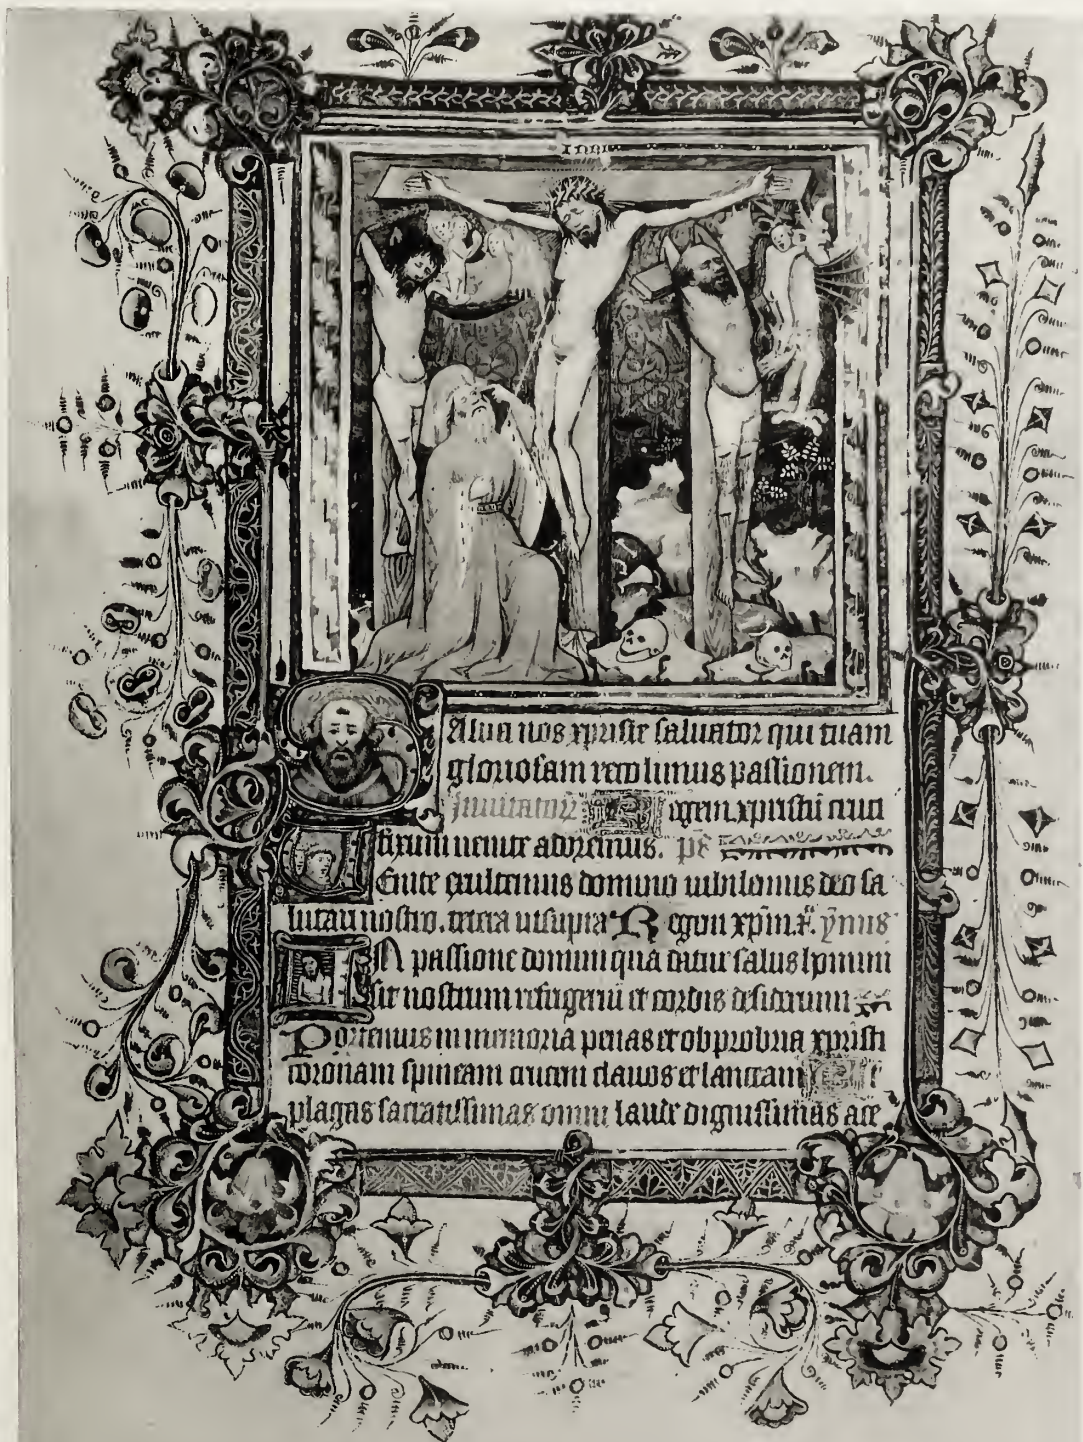 Salua nos xpriste saluator qui tuam
gloriosam recolimus passionem.
Inuitator' Regem xpristū cruci
fixum uenite adoremus. ps̄
Uenite exultemus domino iubilemus deo sa
lutari nostro. cetera ut supra Regem xpm̄. ymnus
IN passione domini qua datur salus homini
sit nostrum refugeriū et cordis desiderium
Portemus in memoria penas et obprobria xpristi
coronam spineam crucem clauos et lanceam
plagas sacratissimas omni laude dignissimas ace